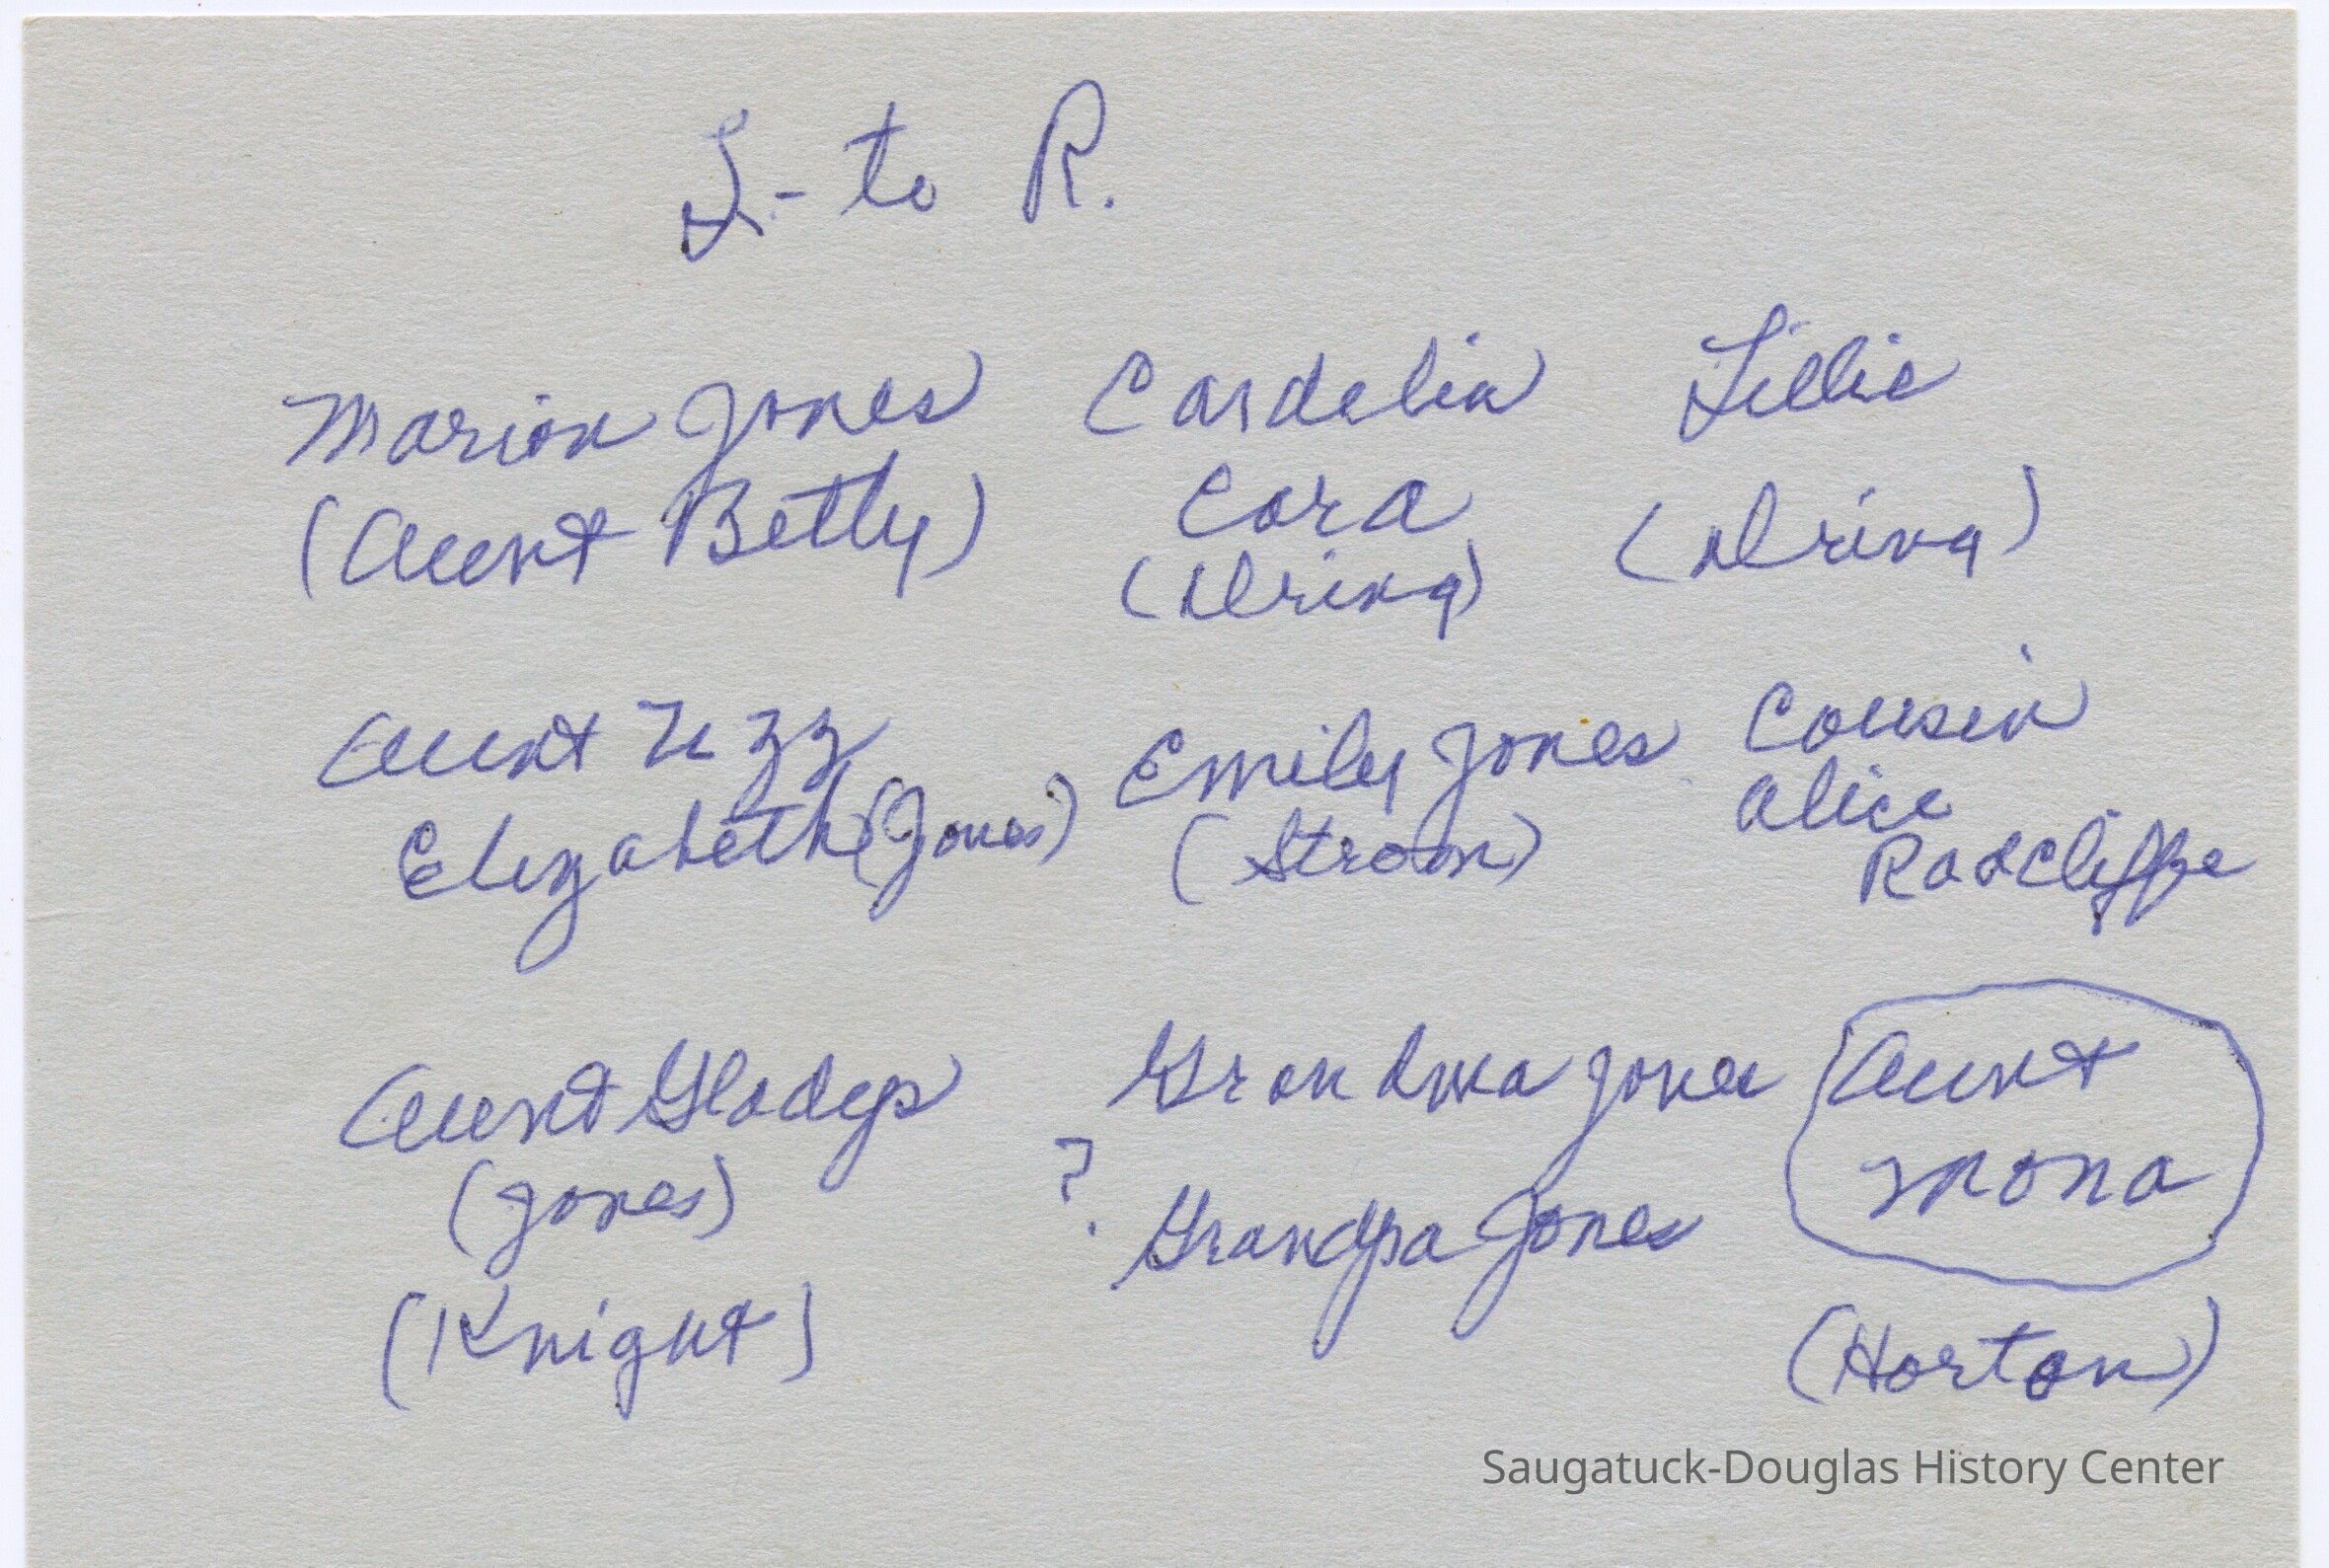 L.- to R.
Marion Jones Cordelia Lillie
(Aunt Betty) Cora (Dring)
(Dring)
Aunt Uzz Emily Jones Cousin
Elizabeth (Jones) (Stroon) Alice
Radcliffe
Aunt Gladys Grandma Jones Aunt
(Jones) ? Grandpa Jones Mona
(Knight) (Horton)
Saugatuck-Douglas History Center